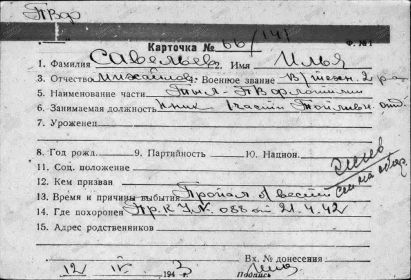 ТВФ
Карточка № 66/141
Ф. №1
1. Фамилия Савельев 2. Имя Илья
3. Отчество Михайлов. Военное звание В/техн. 2 р.
5. Наименование части Тыл - ТВФлотилии
6. Занимаемая должность Нач. 1 части Топливн. отд.
7. Уроженец
8. Год рожд. 9. Партийность 10. Национ.
11. Соц. положение
12. Кем призван
13. Время и причины выбытия Пропал б/вести
14. Где похоронен Пр. К У. № 088 от 21.4.42
15. Адрес родственников
см на обор.
Вх. № донесения
12 IV 1943
Подпись